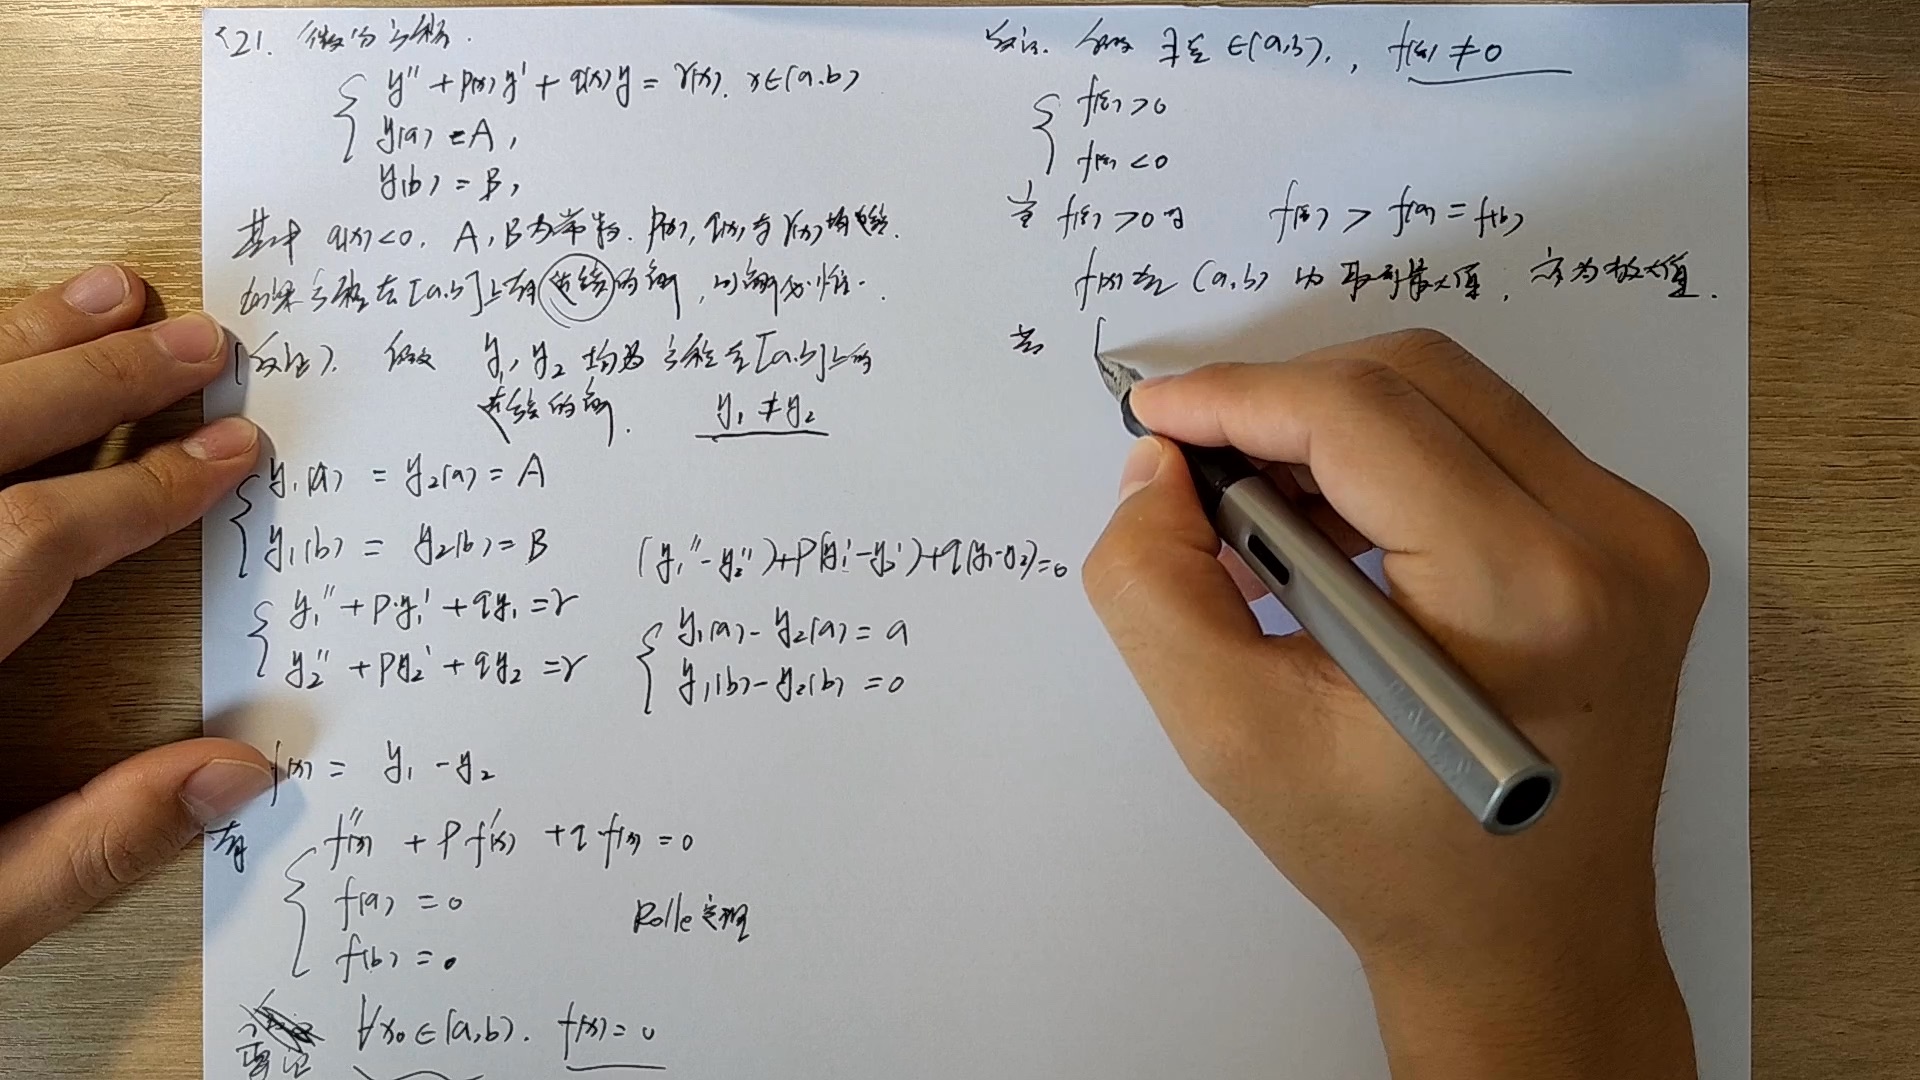 21. 微分方程.
y'' + p(x)y' + q(x)y = r(x). x∈(a.b)
y(a) = A,
y(b) = B,
其中 q(x)<0. A, B为常数. p(x), q(x)与r(x)均连续.
如果方程在[a.b]上有连续的解, 则解必惟一.
(反证). 假设 y₁, y₂ 均为方程在[a.b]上的
连续的解. y₁ ≠ y₂
y₁(a) = y₂(a) = A
y₁(b) = y₂(b) = B
y₁'' + p·y₁' + qy₁ = r
y₂'' + py₂' + qy₂ = r
(y₁''-y₂'')+p(y₁'-y₂')+q(y₁-y₂)=0
y₁(a) - y₂(a) = 0
y₁(b) - y₂(b) = 0
f(x) = y₁ - y₂
有 f''(x) + p f'(x) + q f(x) = 0
f(a) = 0
f(b) = 0
Rolle定理
要证 ∀x₀∈(a,b). f(x) = 0
反证. 假设 ∃ξ∈(a,b)., f(ξ) ≠ 0
f(ξ) > 0
f(ξ) < 0
当 f(ξ) > 0时 f(ξ) > f(a) = f(b)
f(x)在(a,b)内取到最大值, 亦为极大值.